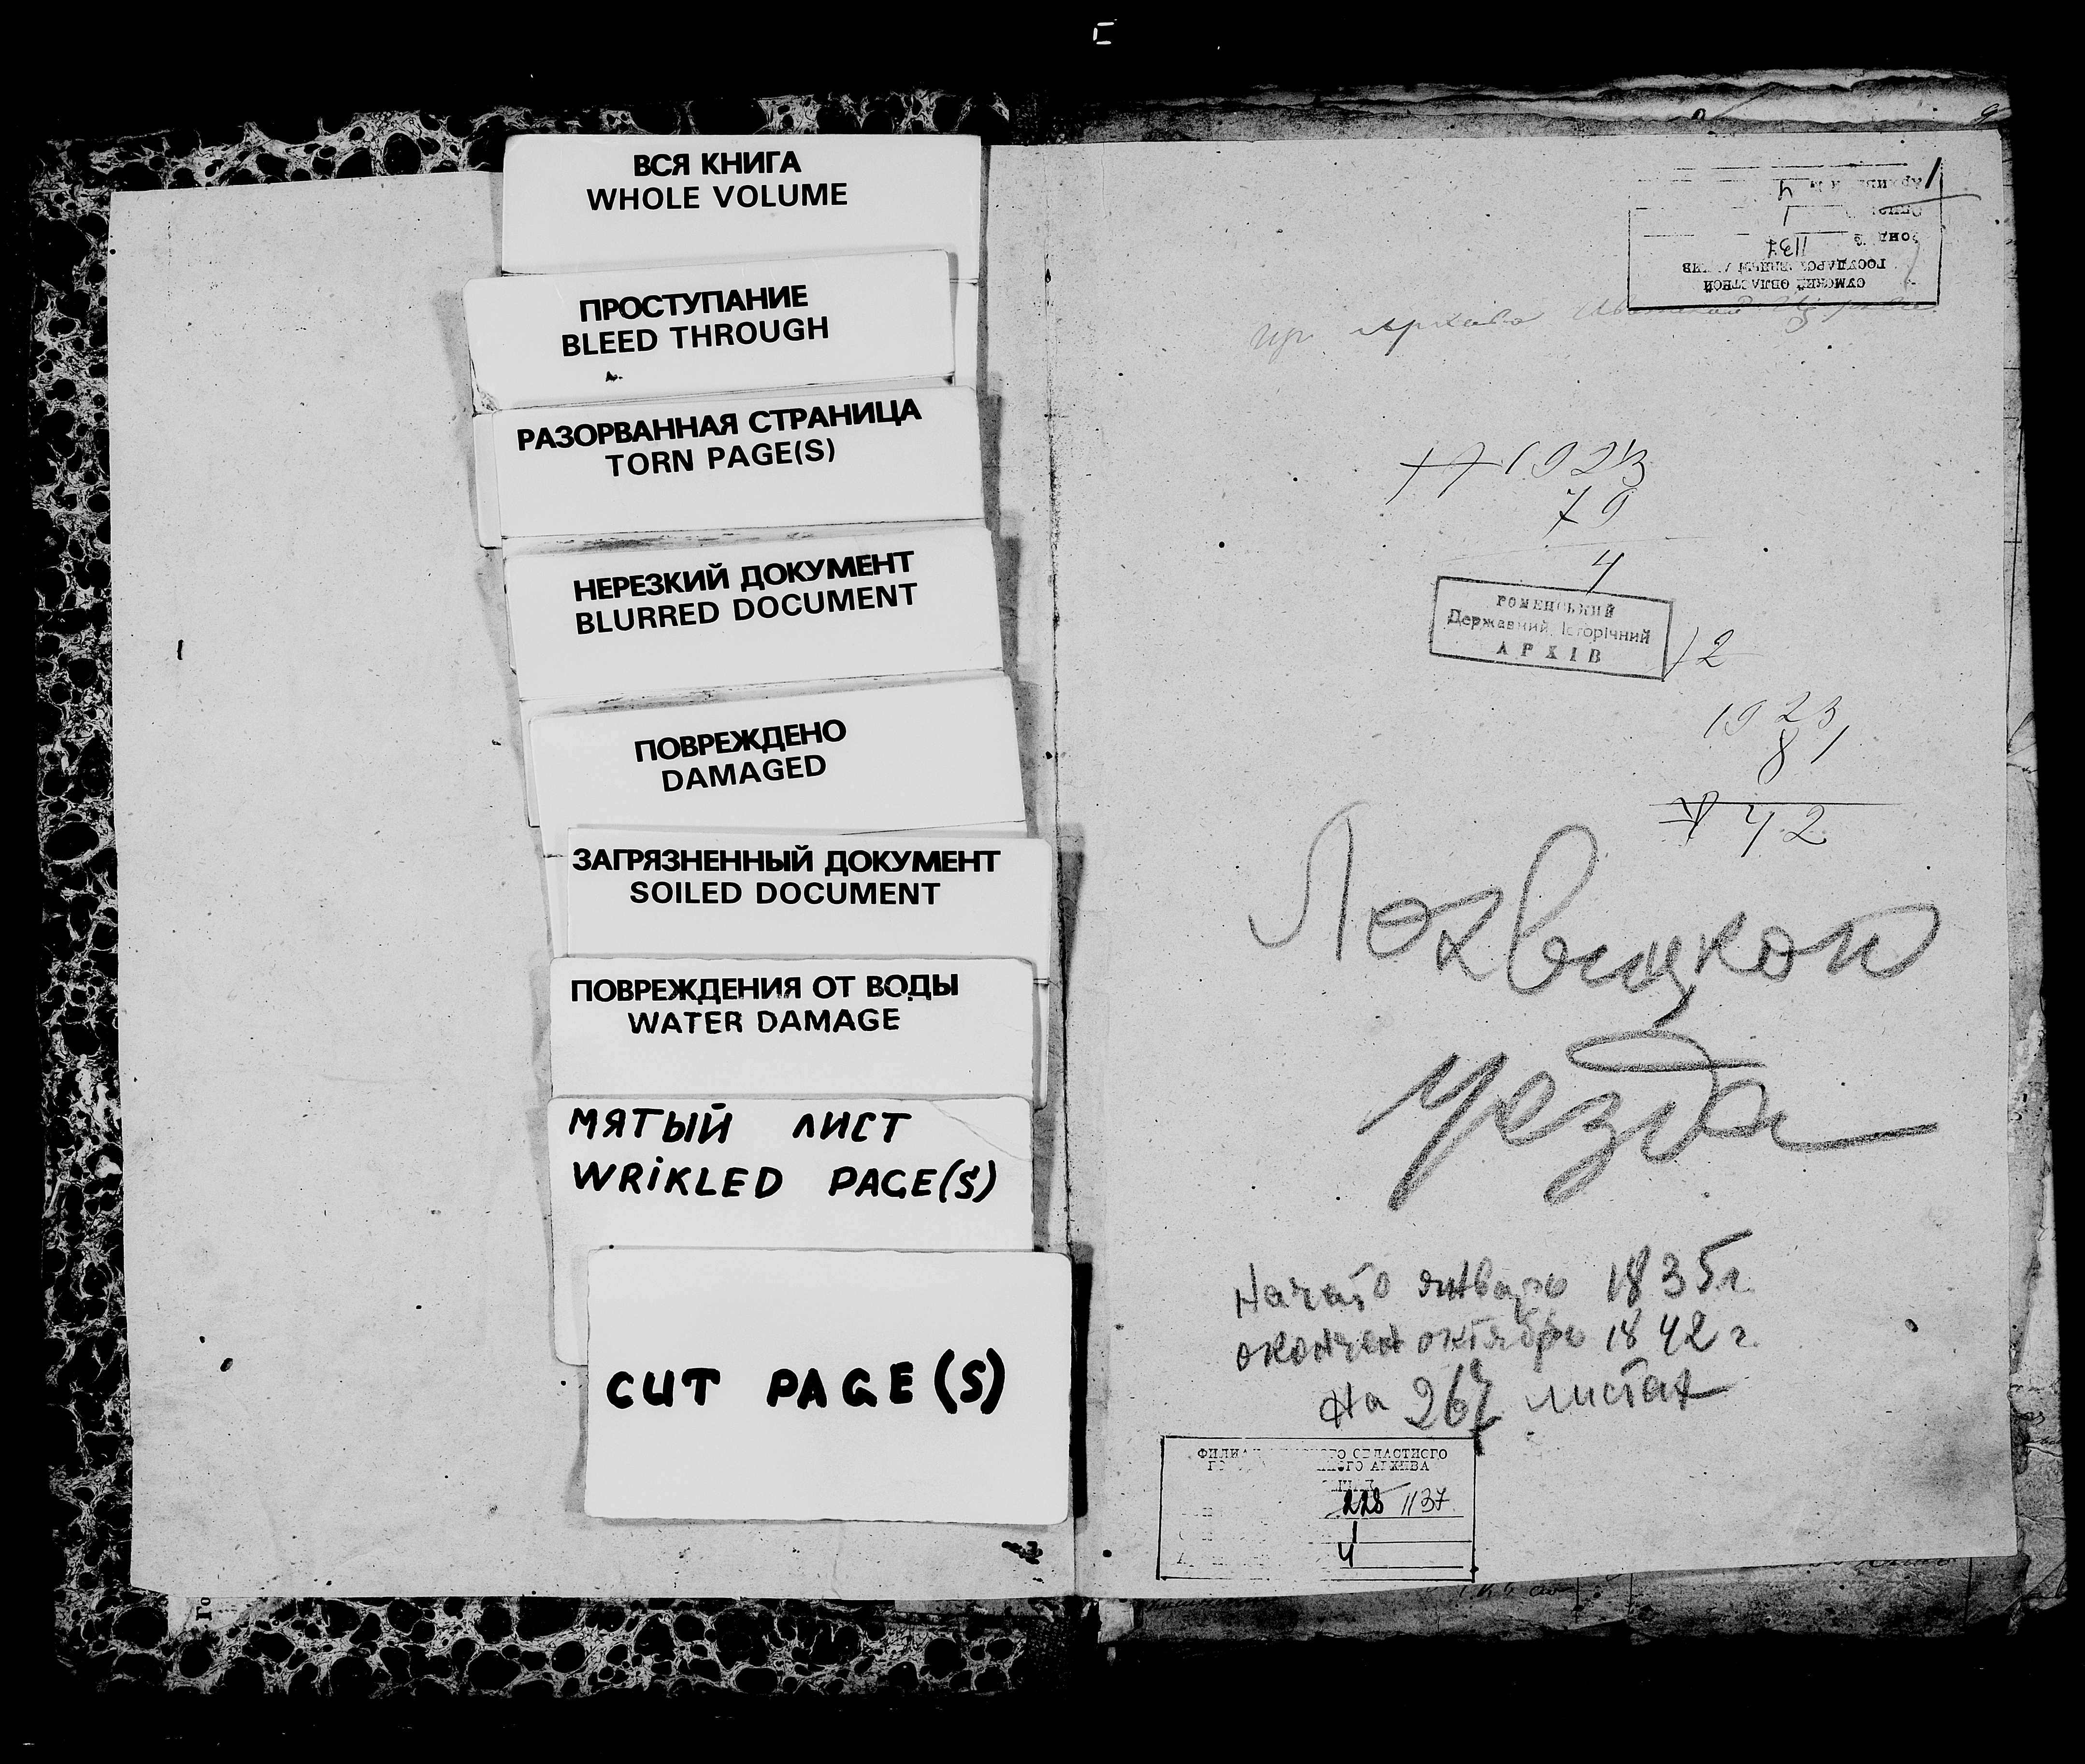 ВСЯ КНИГА
WHOLE VOLUME
ПРОСТУПАНИЕ
BLEED THROUGH
РАЗОРВАННАЯ СТРАНИЦА
TORN PAGE(S)
НЕРЕЗКИЙ ДОКУМЕНТ
BLURRED DOCUMENT
ПОВРЕЖДЕНО
DAMAGED
ЗАГРЯЗНЕННЫЙ ДОКУМЕНТ
SOILED DOCUMENT
ПОВРЕЖДЕНИЯ ОТ ВОДЫ
WATER DAMAGE
МЯТЫЙ ЛИСТ
WRiKLED PAGE(S)
CUT PAGE(S)
1
СУМСКИЙ ОБЛАСТНОЙ
ГОСУДАРСТВЕННЫЙ АРХИВ
1137
1
4
1923
79
4
РОМЕНСЬКИЙ
Державний Історічний
АРХІВ
12
1923
81
42
Лохвицкой
уезда
Начато январю 1835 г.
окончен октябрю 1842 г.
На 267 листах
ОБЛАСТНОГО
АРХИВА
228 1137
1
4